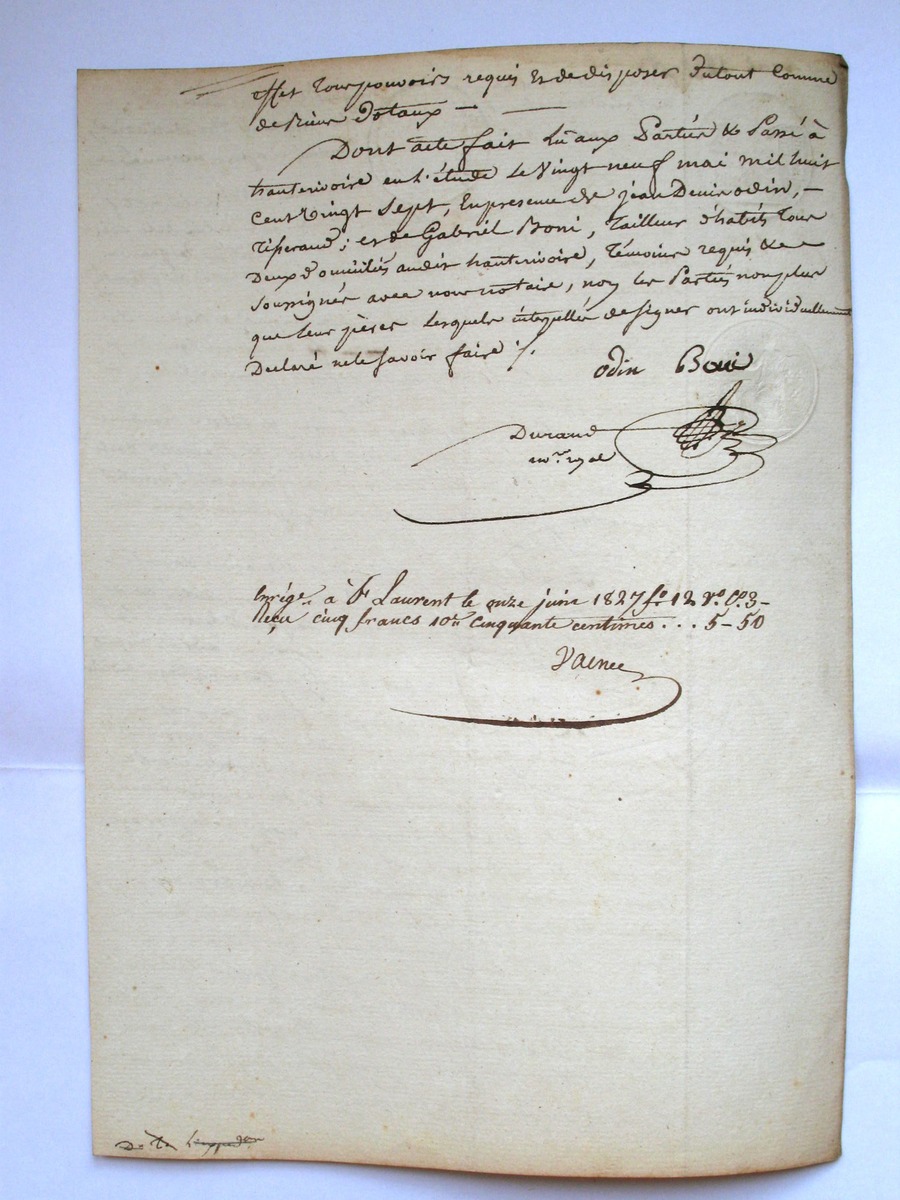 effet tous pouvoirs requis et de disposer du tout comme
de biens dotaux —
Dont acte fait lu aux Parties & Passé à
hauterivoire en l'étude le Vingt neuf mai mil huit
cent Vingt Sept, En presence de jean Denis odin,
tisserand; et de Gabriel Boni, tailleur d'habits tous
Deux domiciliés audit hauterivoire, témoins requis &
soussignés avec nous notaire, non les Parties non plus
que leurs pères lesquels interpellés de signer ont individuellement
Declaré ne le savoir faire ./.
odin Boni
Durand
nore. royal
Enrége. à St Laurent le onze juin 1827 fo. 12 Vo. Ce. 3
Reçu cinq francs 10e. cinquante centimes . . . 5-50